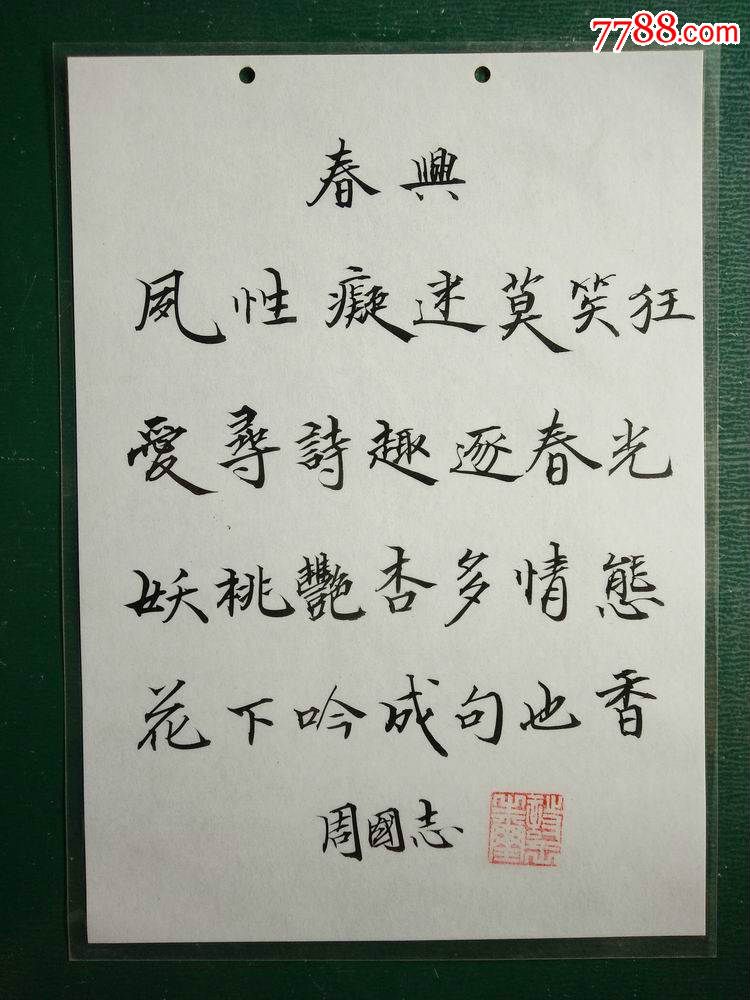 7788.com
春興
夙性癡迷莫笑狂
愛尋詩趣逐春光
妖桃艷杏多情態
花下吟成句也香
周國志